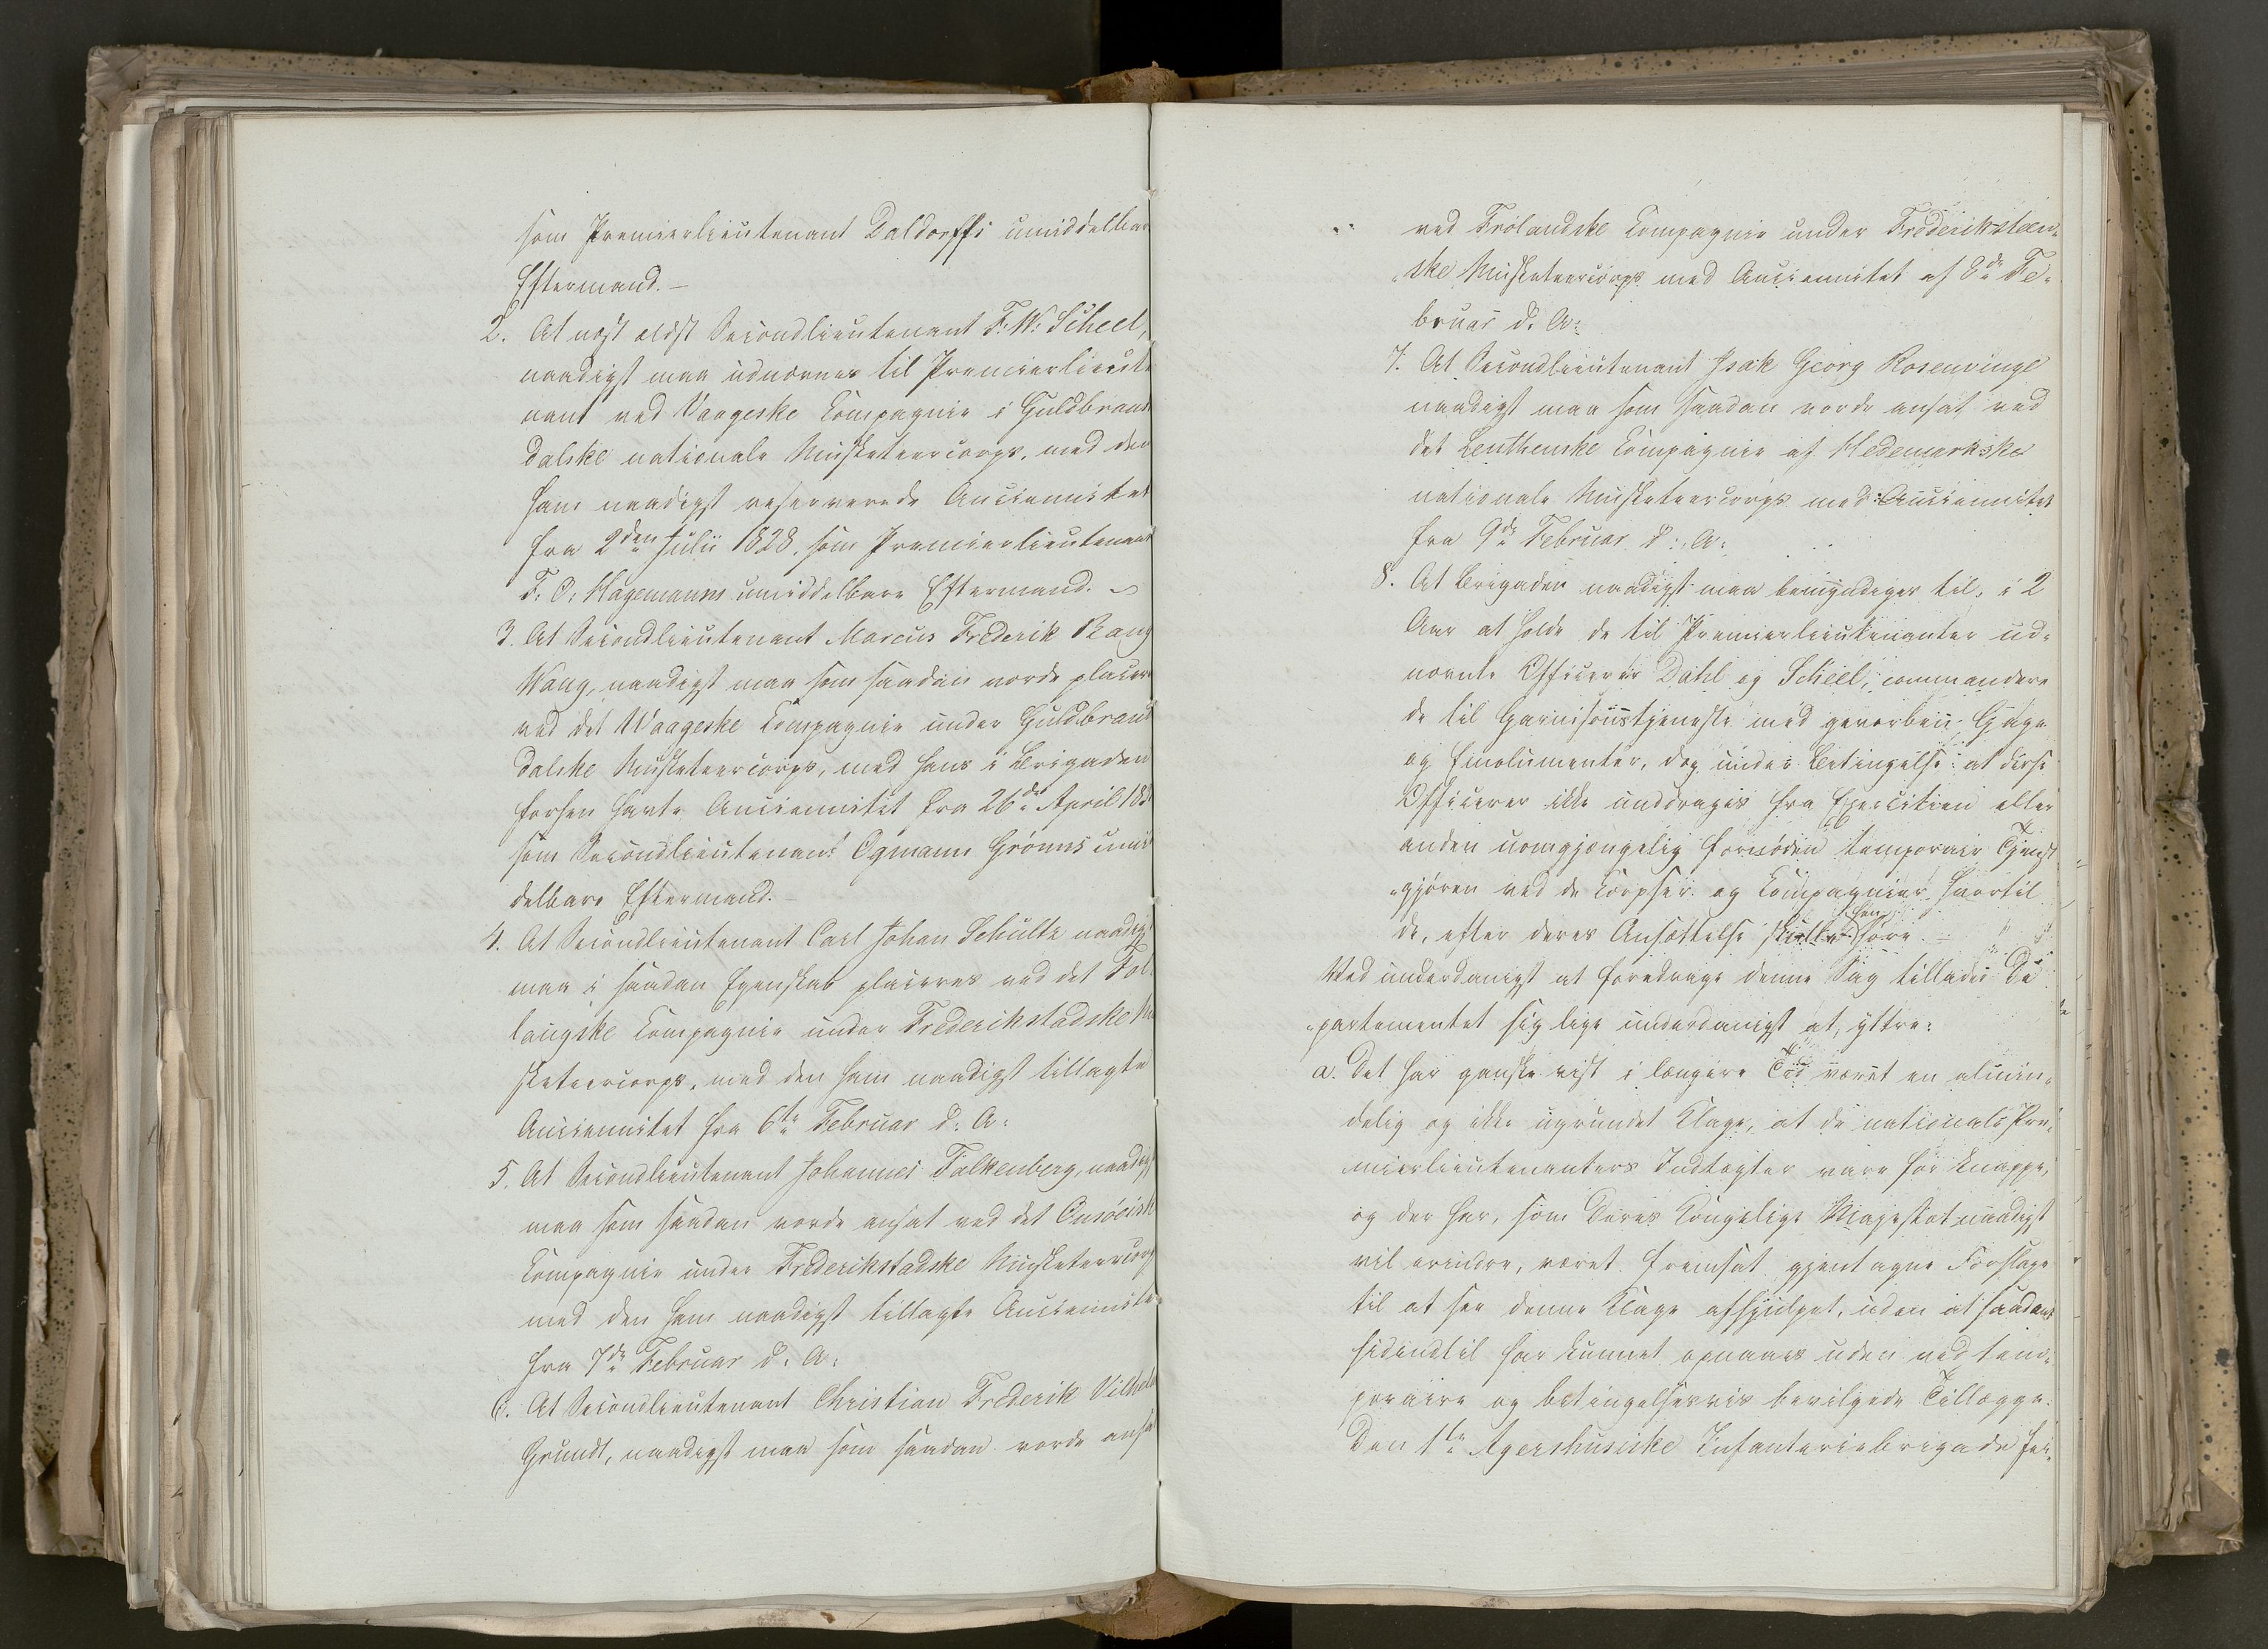 som Premierlieutenant Daldorffs umiddelbar
Eftermand.—
2. At næst ældst Secondlieutenant F: W: Scheel,
naadigst maa udnævnes til Premierlieute
nant ved Vaageske Compagnie i Guldbrands
dalske nationale Musketeercorps, med den
ham naadigst reserverede Anciennitet
fra 2den Julii 1828, som Premierlieutenant
F: O: Hagemanns umiddelbare Eftermand.
3. At Secondlieutenant Marcus Frederik Bang
Wang, naadigst maa som saadan vorde placeret
ved det Waageske Compagnie under Guldbrands
dalske Musketeercorps, med hans i Brigaden
forhen havte Anciennitet fra 26de April 183
som Secondlieutenant Ogmann Grönns umid
delbare Eftermand.—
4. At Secondlieutenant Carl Johan Schultz naadigst
maa i saadan Egenskab placeres ved det Fol
laugske Compagnie under Frederikstadske Mu
sketeercorps, med den ham naadigst tillagte
Anciennitet fra 6te Februar d: A:
5. At Secondlieutenant Johannes Falkenberg, naadigst
maa som saadan vorde ansat ved det Onsöeisk
Compagnie under Frederikstadske Musketeercorps
med den ham naadigst tillagte Anciennitet
fra 7de Februar d: A:
6. At Secondlieutenant Christian Frederik Vilhelm
Grundt, naadigst maa som saadan vorde ansat
ved Frölandske Compagnie under Frederiksteen-
ske Musketeercorps med Anciennitet af 8de Fe-
bruar d: A:
7. At Secondlieutenant Isak Georg Rosenvinge
naadigst maa som saadan vorde ansat ved
det Leuthenske Compagnie af Hedemarkske
nationale Musketeercorps med Anciennitet
fra 9de Februar d: A:
8. At Brigaden naadigst maa bemyndiges til, i 2
Aar at holde de til Premierlieutenanter ud-
nævnte Officerer Dahl og Scheel, commandere
de til Garnisonstjeneste med gevorben Gage
og Emolumenter, dog under Betingelse: at disse
Officerer ikke unddrages fra Exercitien eller
anden uomgjængelig fornöden temporair Tjenst
gjören ved de Corpser og Compagnier hvortil
de, efter deres Ansættelse skulle hen höre.—
Ved underdanigst at foredrage denne Sag tillader De
partementet sig lige underdanigst at, yttre:
a. Det har ganske vist i længere Tid været en almin-
delig og ikke ugrundet Klage, at de nationale Pre-
mierlieutenanters Indtægter vare for knappe,
og der har, som Deres Kongelige Majestæt naadigst
vil erindre, været fremsat gjentagne Forslage
til at see denne Klage afhjulpet, uden at saadant
hidindtil har kunnet opnaaes uden ved tem-
poraire og betingelsesvis bevilgede Tillægge.
Den 1te Agershusiske Infanteriebrigade her-